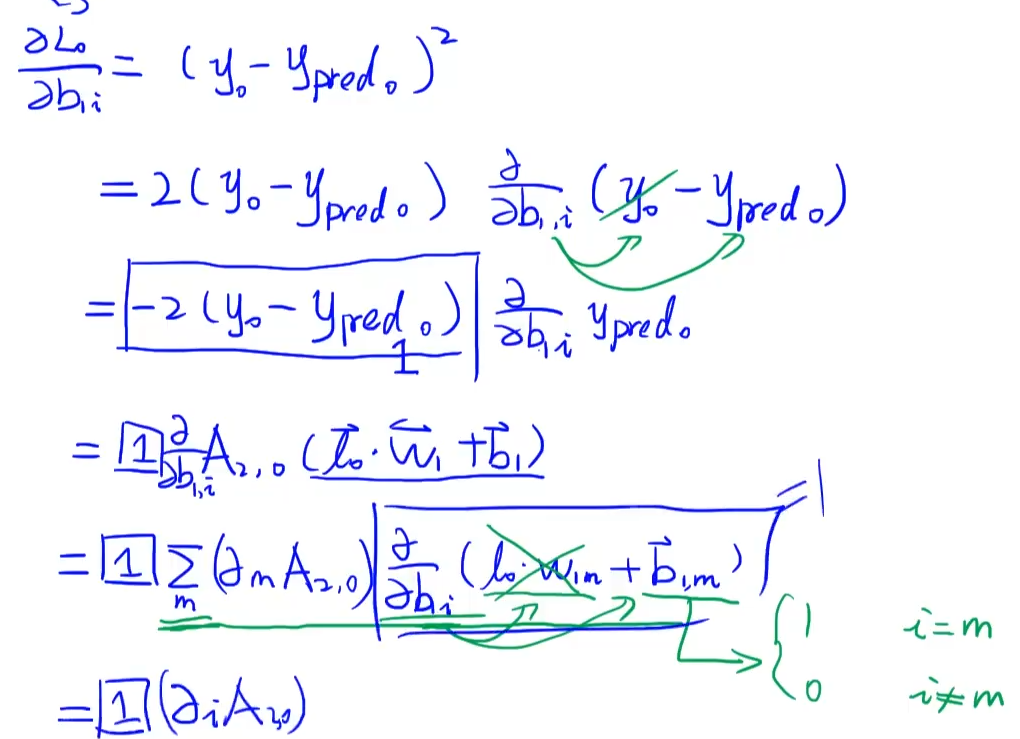 ∂L₀/∂b₁ᵢ = (y₀ - y_pred₀)²
= 2(y₀ - y_pred₀) ∂/∂b₁,ᵢ (y₀ - y_pred₀)
= -2(y₀ - y_pred₀) ∂/∂b₁ᵢ y_pred₀
1
= 1 ∂/∂b₁,ᵢ A₂,₀ (l⃗₀·w⃗₁ + b⃗₁)
= 1 Σₘ (∂ₘA₂,₀) ∂/∂b₁ᵢ (l₀·w₁ₘ + b⃗₁,ₘ) = 1
{ 1 i=m
0 i≠m
= 1 (∂ᵢA₂,₀)